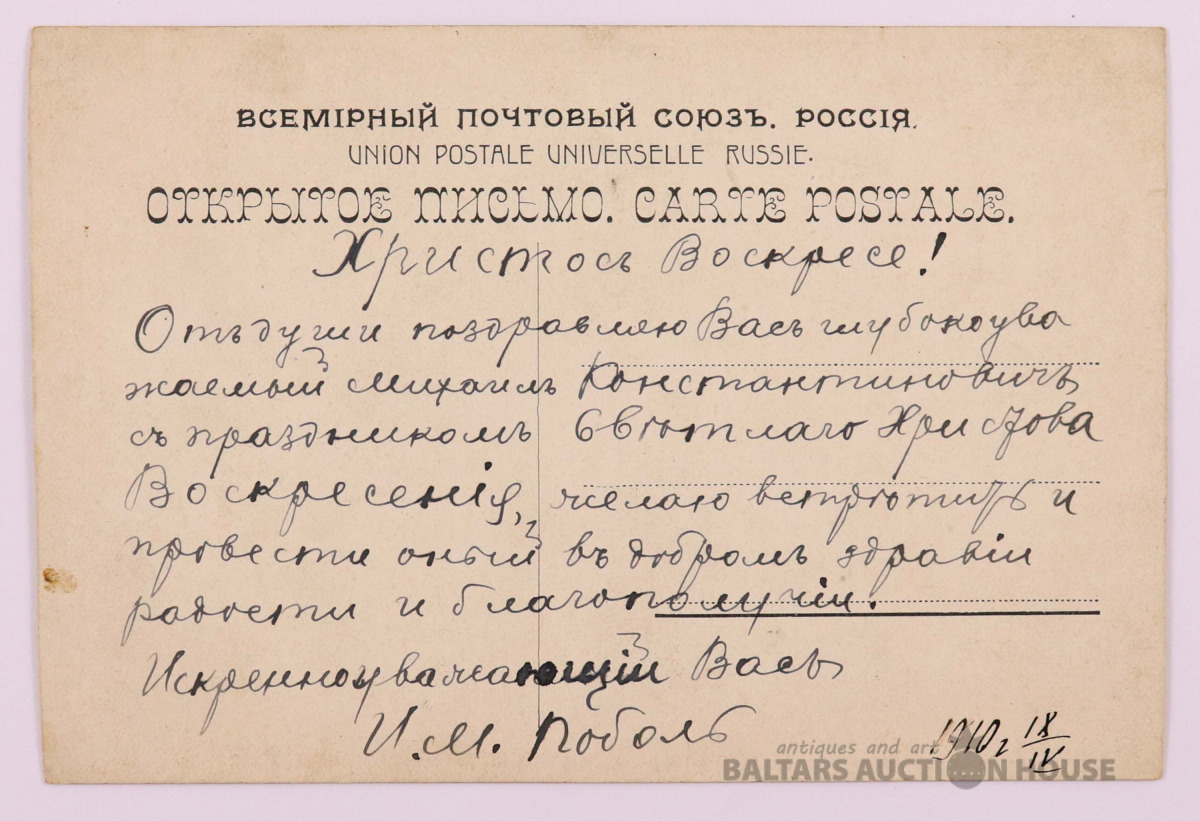 ВСЕМІРНЫЙ ПОЧТОВЫЙ СОЮЗЪ. РОССІЯ.
UNION POSTALE UNIVERSELLE RUSSIE.
ОТКРЫТОЕ ПИСЬМО. CARTE POSTALE.
Христосъ Воскресе!
Отъ души поздравляю Васъ глубокоува
жаемый Михаилъ Константиновичъ
съ праздникомъ Свѣтлаго Христова
Воскресенія, желаю встрѣтить и
провести оный въ добромъ здравіи
радости и благополучіи.
Искренноуважающій Васъ
И. М. Поболь
1910 г IX/IV
antiques and art
BALTARS AUCTION HOUSE